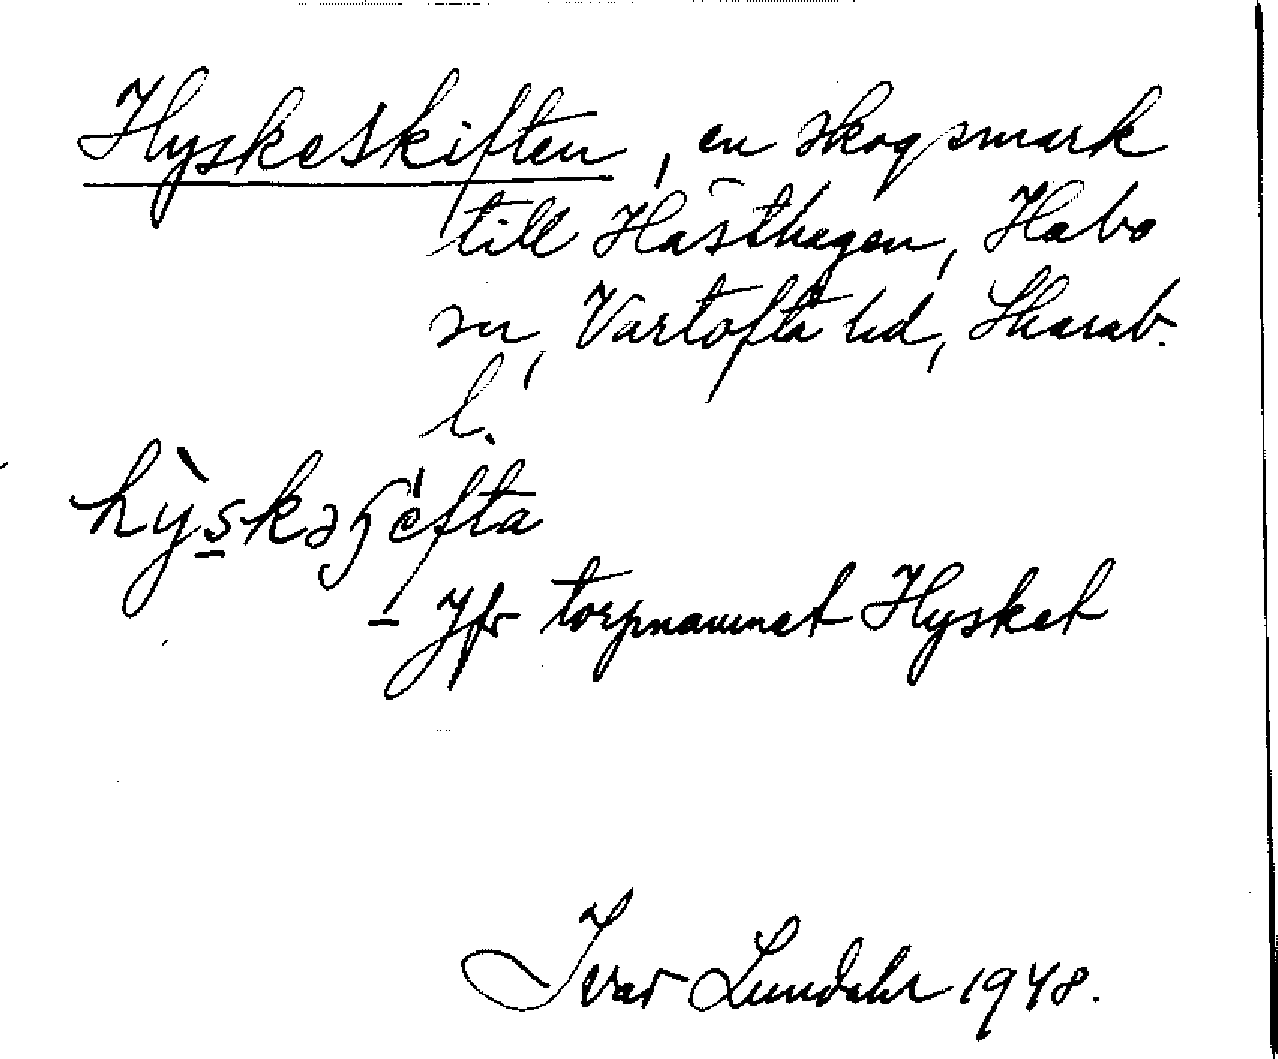 Hyskeskiften, en skogsmark
till Hästhagen, Habo
sn, Vartofta hd, Skarab.
l.
hỳskəʃefta
– Jfr torpnamnet Hysket
Ivar Lundahl 1948.